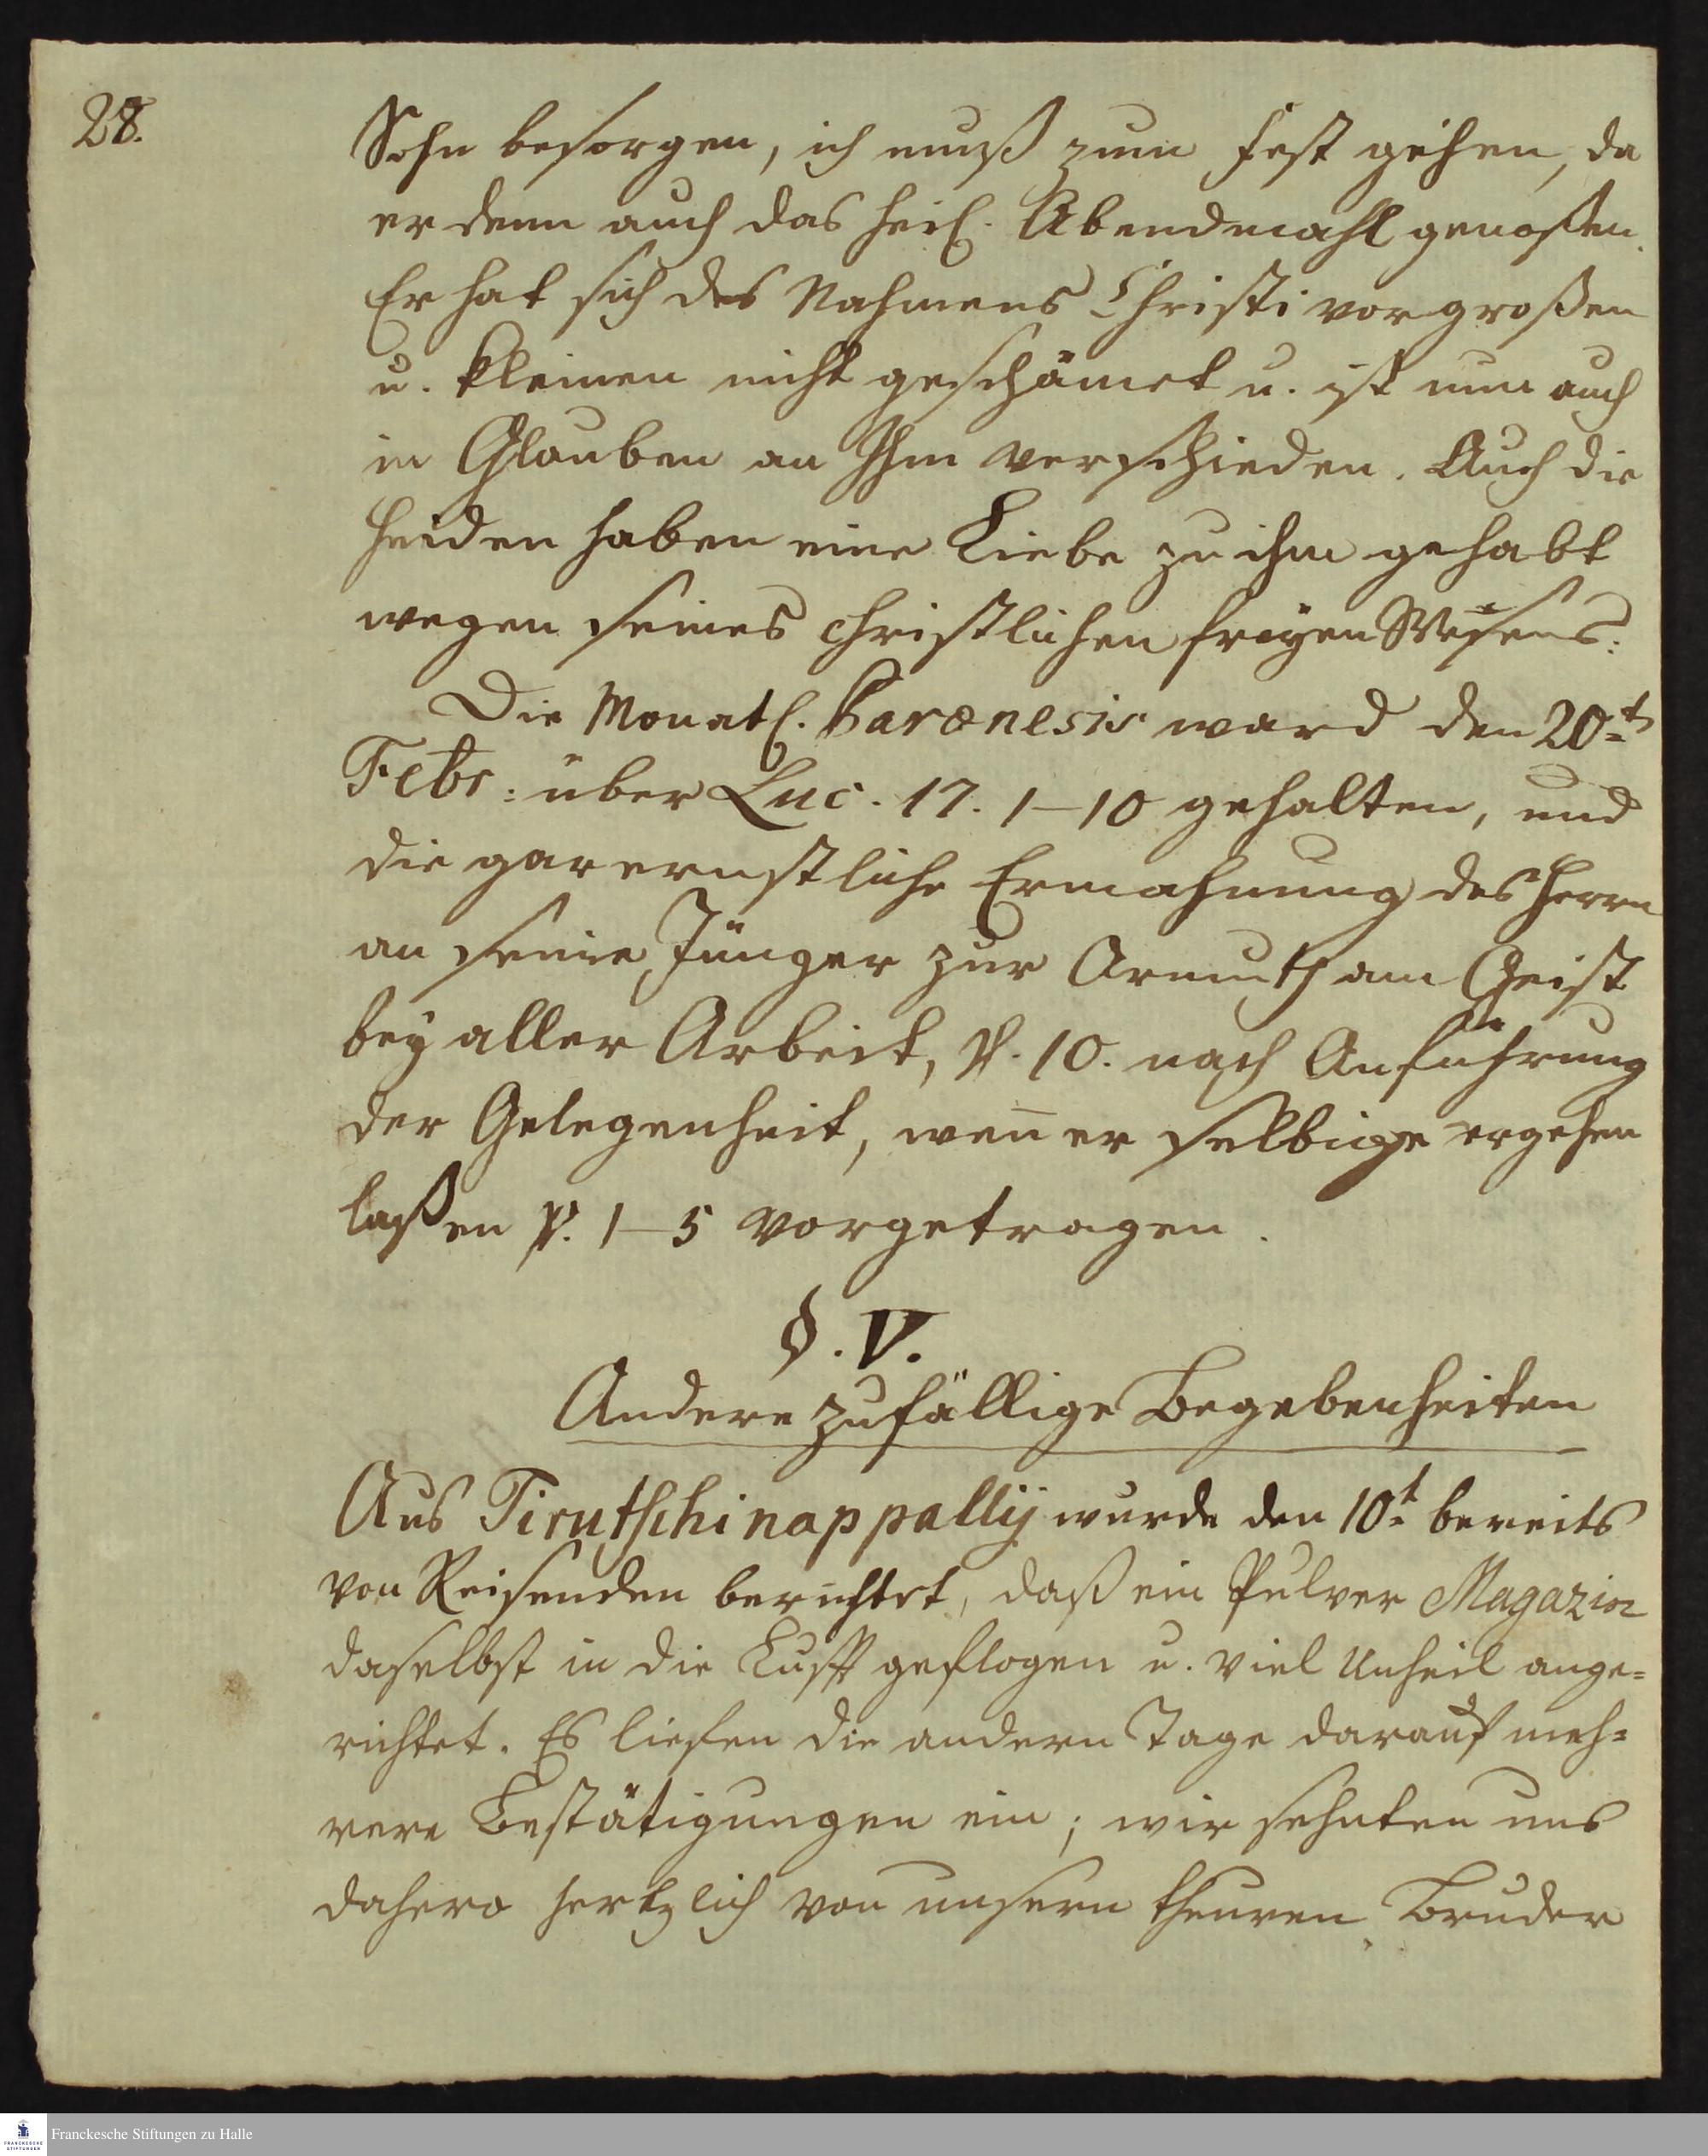 28.
Sohn besorgen, ich muß zum Fest gehen, da
er denn auch das heil. Abendmahl genoßen.
Er hat sich des Nahmens Christi vor großen
u. kleinen nicht geschämet u. ist nun auch
in Glauben an Ihm verschieden. Auch die
Heiden haben eine Liebe zu ihm gehabt
wegen seines christlichen freyen Wesens.
Die Monatl. Parænesis ward den 20t
Febr: über Luc. 17. 1–10 gehalten, und
die gar ernstliche Ermahnung des Herrn
an seine Jünger zur Armuth am Geist
bey aller Arbeit, v. 10. nach Anführung
der Gelegenheit, weñ er selbige ergehen
laßen v. 1–5 vorgetragen.
§. V.
Andere zufällige Begebenheiten
Aus Tirutschinappallÿ wurde den 10t bereits
von Reisenden berichtet, daß ein Pulver Magazin
daselbst in die Lufft geflogen u. viel Unheil ange=
richtet. Es liefen die andern Tage darauf meh=
rere Bestätigungen ein; wir sehnten uns
dahero hertzlich von unsern theuren Bruder
Franckesche Stiftungen zu Halle